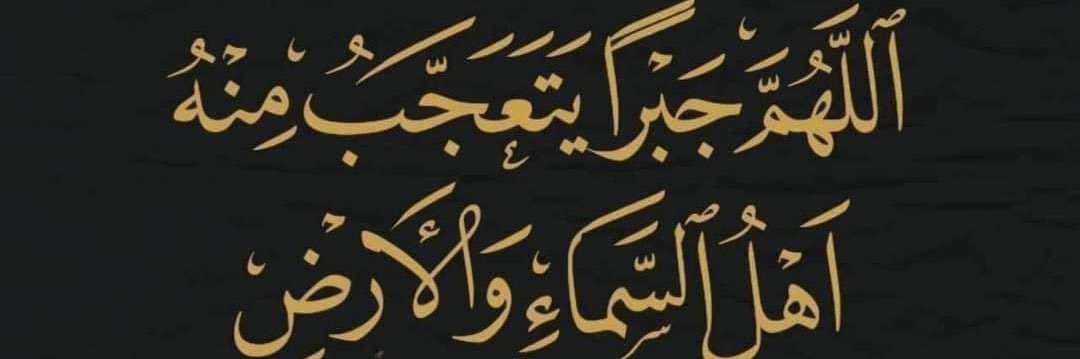 ٱللَّهُمَّ جَبْرًا يَتَعَجَّبُ مِنْهُ
اَهْلُ ٱلسَّمَاءِ وَالْأَرْضِ